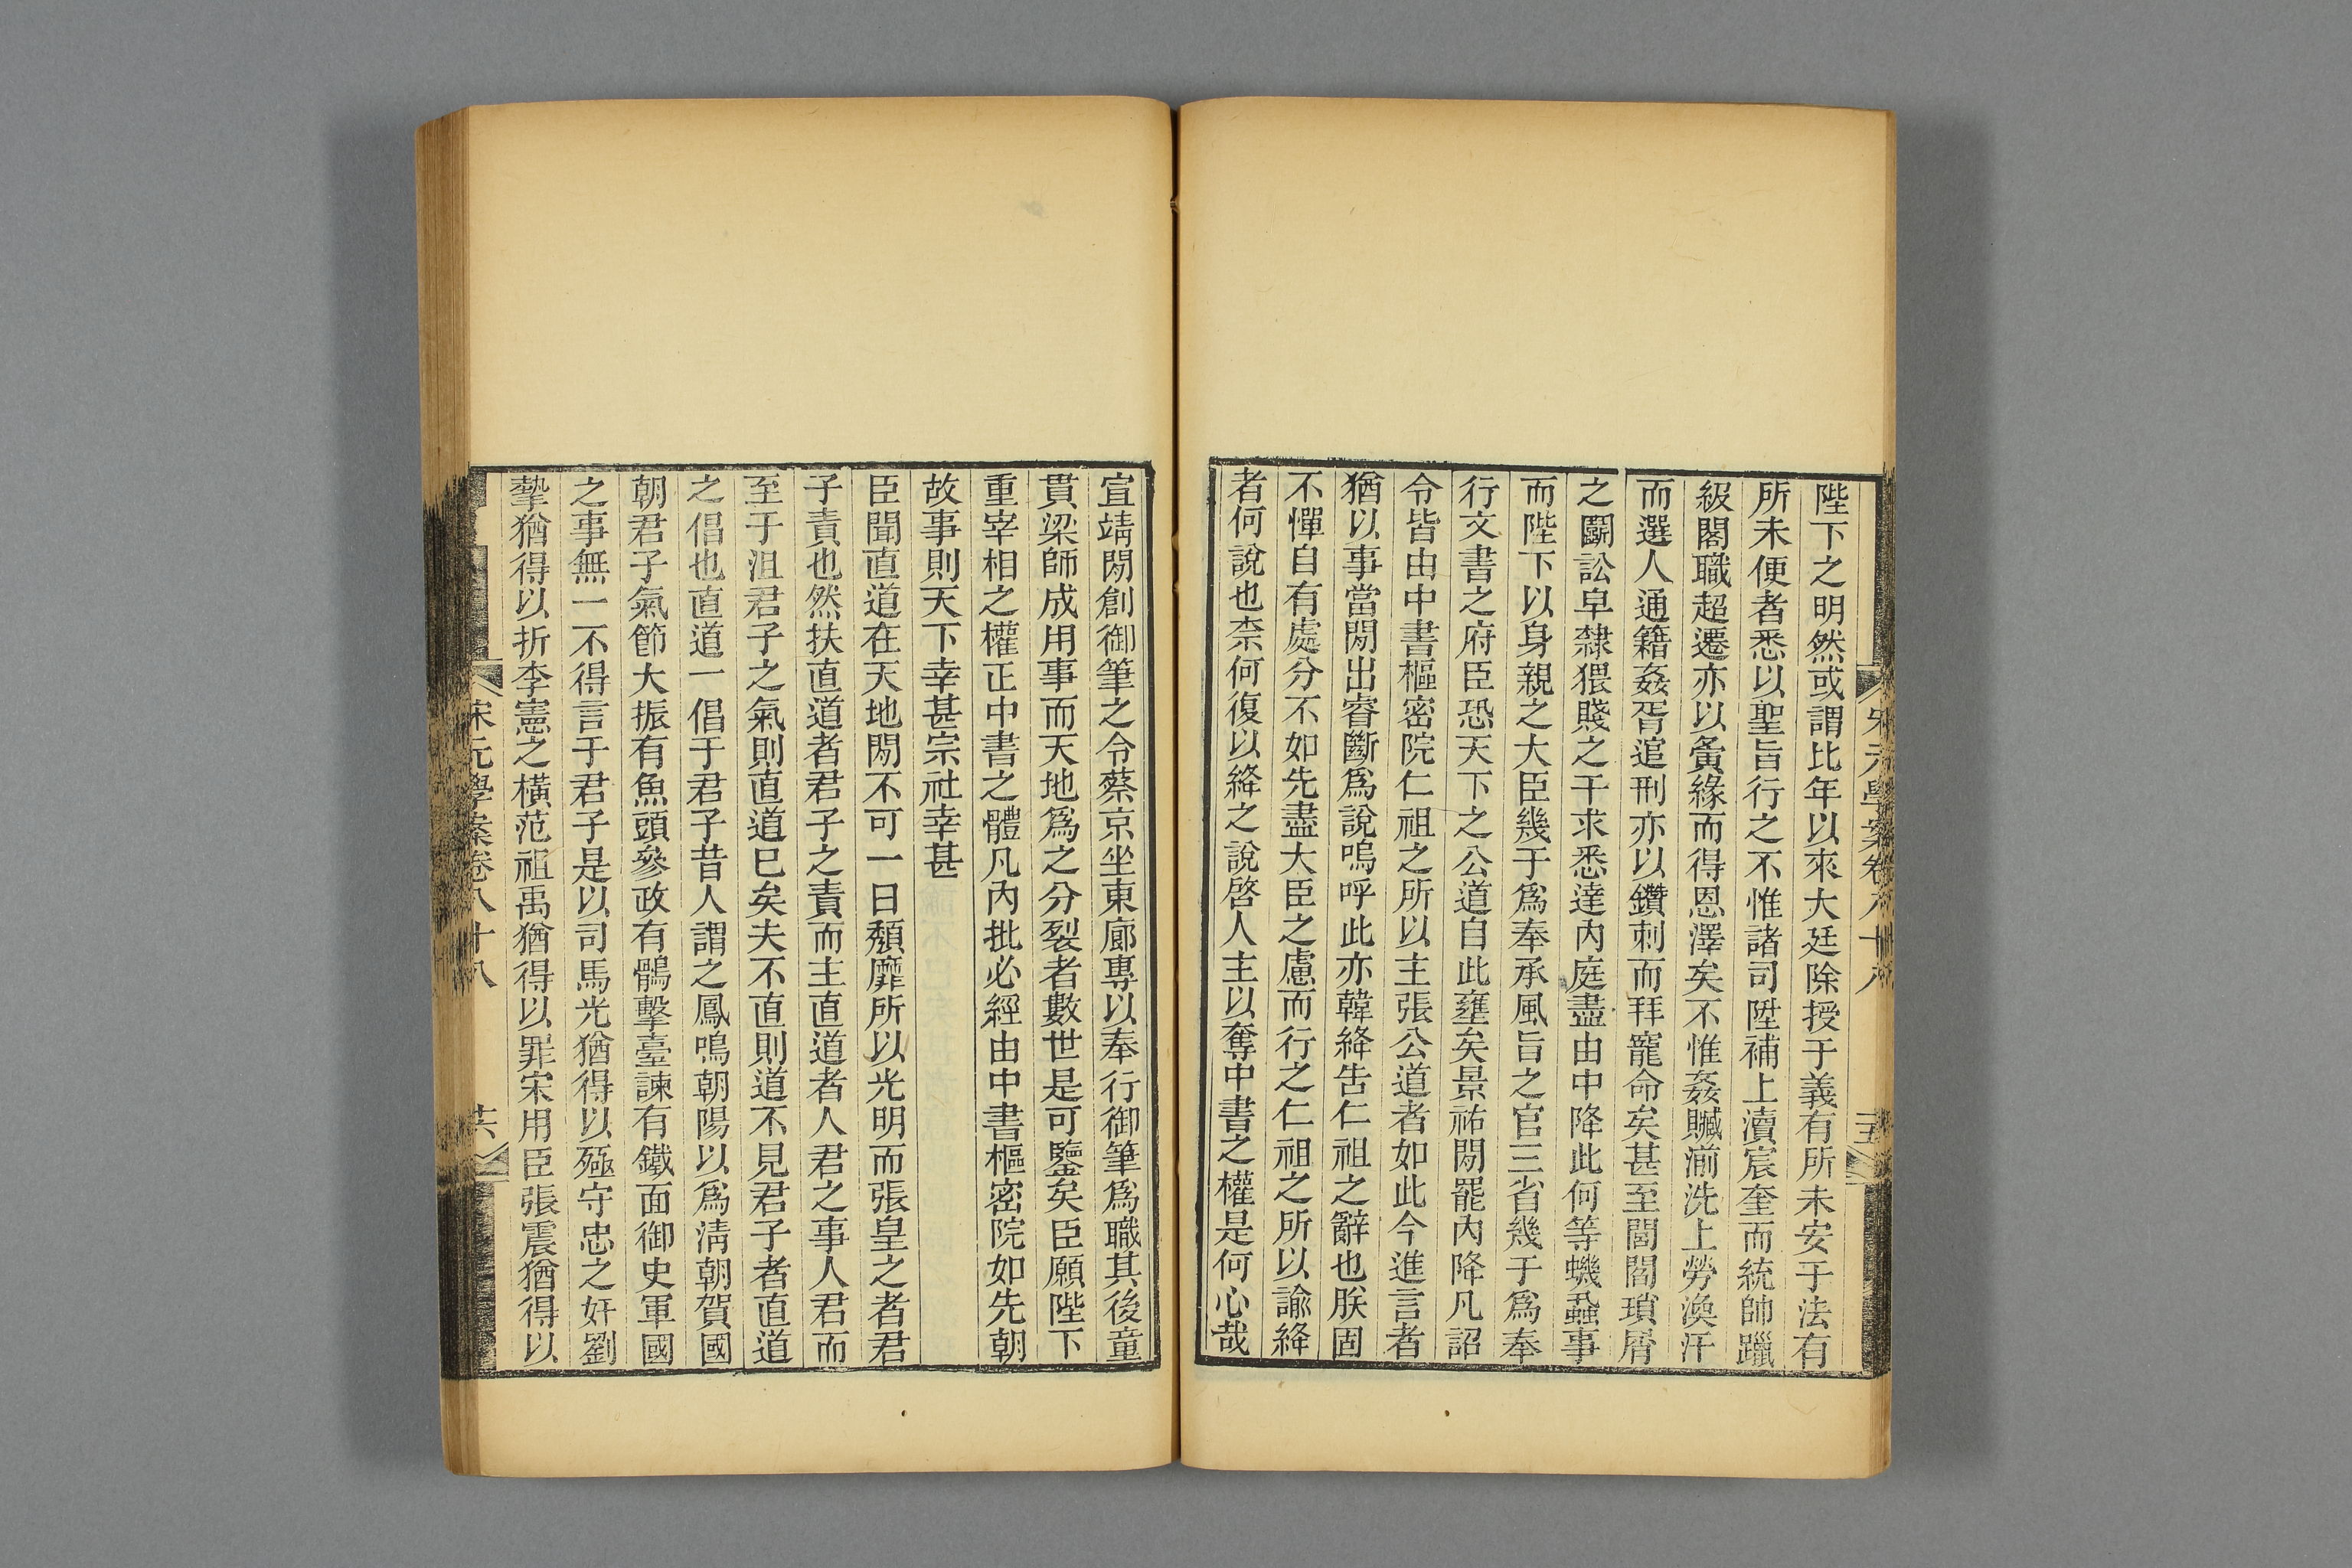 宋元學案卷八十八
十五
陛下之明然或謂比年以來大廷除授于義有所未安于法有
所未便者悉以聖旨行之不惟諸司陞補上瀆宸奎而統帥躐
級閣職超遷亦以夤緣而得恩澤矣不惟姦贓湔洗上勞渙汗
而選人通籍姦胥逭刑亦以鑽刺而拜寵命矣甚至閭閻瑣屑
之鬬訟皁隸猥賤之干求悉達內庭盡由中降此何等蟣蝨事
而陛下以身親之大臣幾于爲奉承風旨之官三省幾于爲奉
行文書之府臣恐天下之公道自此壅矣景祐閒罷內降凡詔
令皆由中書樞密院仁祖之所以主張公道者如此今進言者
猶以事當閒出睿斷爲說嗚呼此亦韓絳告仁祖之辭也朕固
不憚自有處分不如先盡大臣之慮而行之仁祖之所以諭絳
者何說也柰何復以絳之說啓人主以奪中書之權是何心哉
宣靖閒創御筆之令蔡京坐東廊專以奉行御筆爲職其後童
貫梁師成用事而天地爲之分裂者數世是可鑒矣臣願陛下
重宰相之權正中書之體凡內批必經由中書樞密院如先朝
故事則天下幸甚宗社幸甚
臣聞直道在天地閒不可一日頹靡所以光明而張皇之者君
子責也然扶直道者君子之責而主直道者人君之事人君而
至于沮君子之氣則直道已矣夫不直則道不見君子者直道
之倡也直道一倡于君子昔人謂之鳳鳴朝陽以爲淸朝賀國
朝君子氣節大振有魚頭參政有鶻擊臺諫有鐵面御史軍國
之事無一不得言于君子是以司馬光猶得以殛守忠之奸劉
摯猶得以折李憲之橫范祖禹猶得以罪宋用臣張震猶得以
宋元學案卷八十八
十六